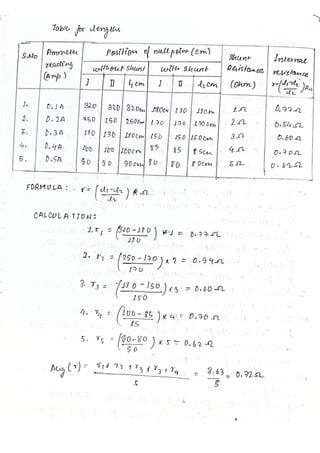 Table for lengths
S.No Ammeter reading (Amp) Position of null point (cm) Shunt Resistance (Ohm) Internal resistance
without shunt with shunt
I II l1 cm I II l2 cm r=(l1-l2/l2)R Ω
1. 0.1A 320 320 320cm 180cm 180 180cm 1Ω 0.77Ω
2. 0.2A 250 250 250cm 170 170 170cm 2Ω 0.54Ω
3. 0.3A 180 180 180cm 150 150 150cm 3Ω 0.60Ω
4. 0.4A 100 100 100cm 85 85 85cm 4Ω 0.70Ω
5. 0.5A 90 90 90cm 80 80 80cm 5Ω 0.62Ω
FORMULA : r = (l1-l2/l2) R Ω
CALCULATION:
1. r1 = (320-180/180) × 1 = 0.77Ω
2. r2 = (250-170/170) × 2 = 0.94Ω
3. r3 = (180-150/150) × 3 = 0.60Ω
4. r4 = (100-85/85) × 4 = 0.70Ω
5. r5 = (90-80/80) × 5 = 0.62Ω
Avg (r) = r1+r2+r3+r3+r4/5 = 3.63/5 = 0.72Ω